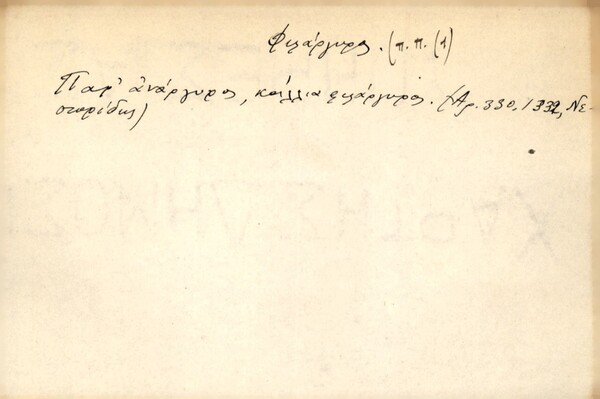 Φιλάργυρος. (π. π. (1)
Παρ' ἀνάργυρος, κάλλια φιλάργυρος. (Αρ. 330, 1332, Νε-
στορίδης)